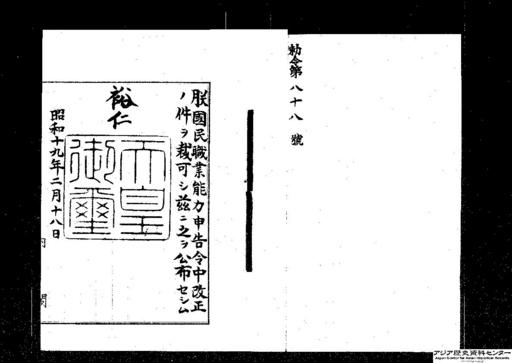 勅令第八十八號
朕國民職業能力申告令中改正
ノ件ヲ裁可シ茲ニ之ヲ公布セシム
裕仁
天皇
御璽
昭和十九年二月十八日
内閣
アジア歴史資料センター
Japan Center for Asian Historical Records